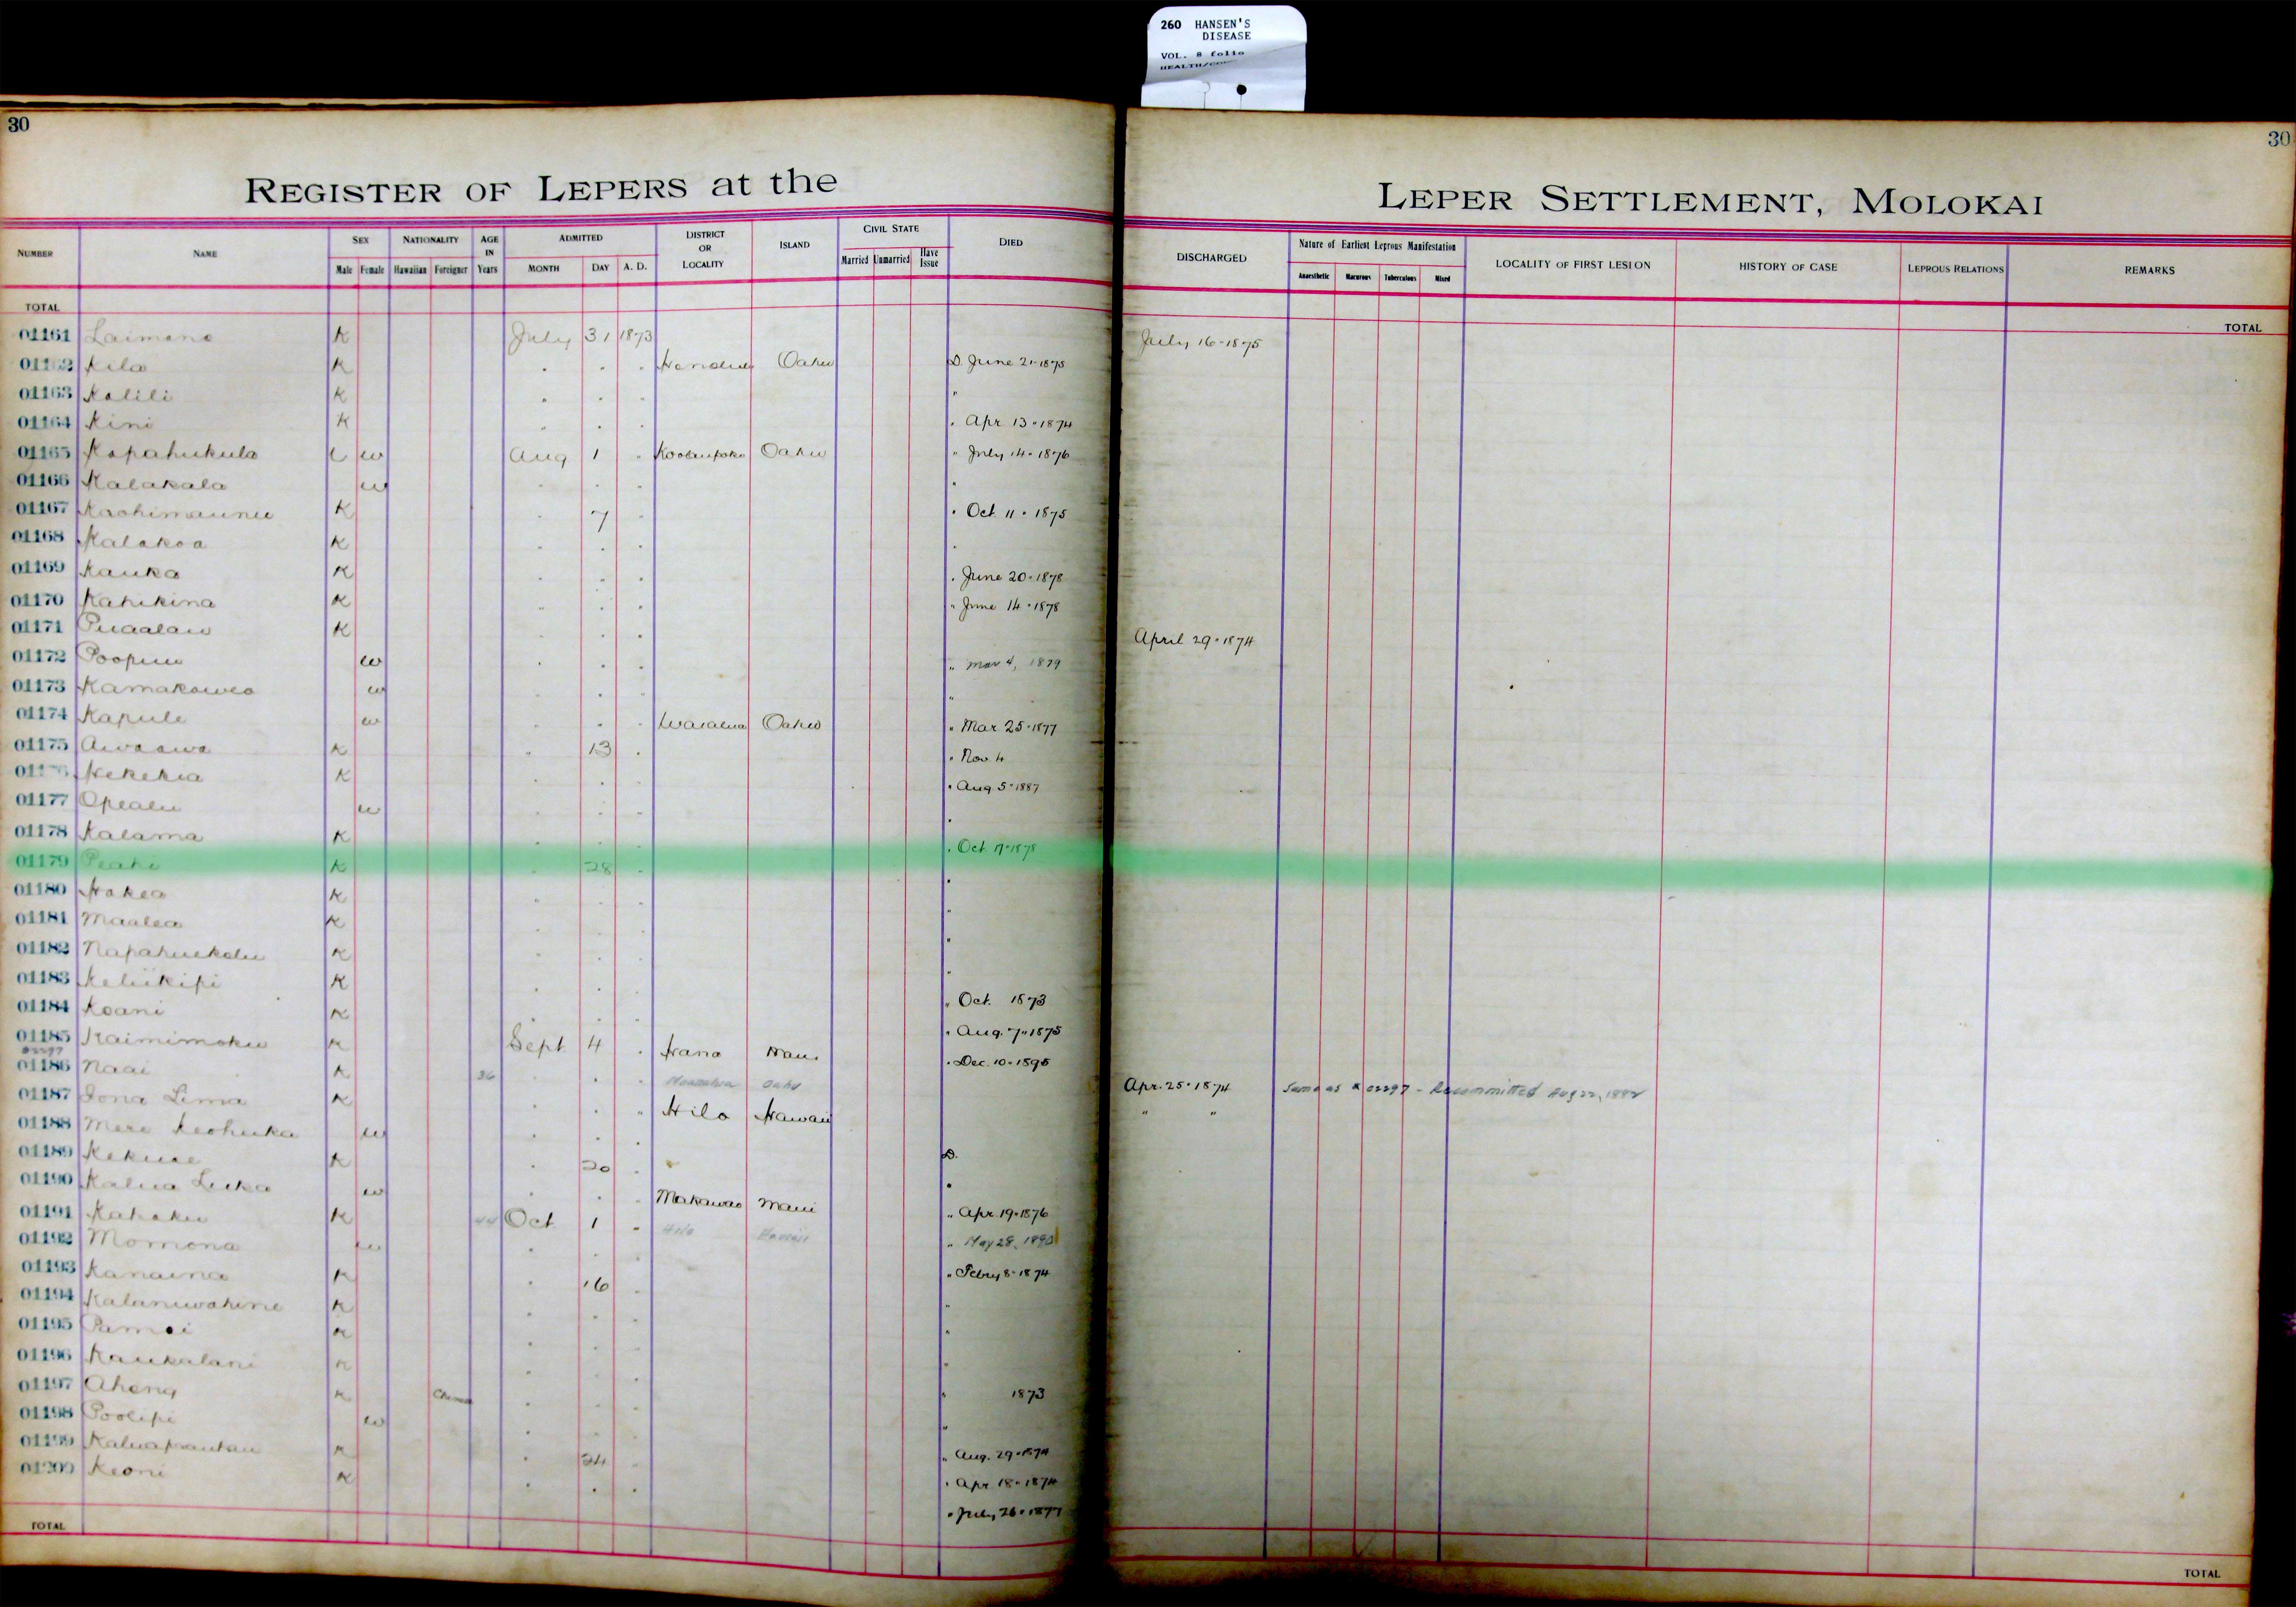 260 HANSEN'S
DISEASE
VOL. 8 folio
30
30
REGISTER OF LEPERS at the
LEPER SETTLEMENT, MOLOKAI
NUMBER NAME SEX Male Female NATIONALITY Hawaiian Foreigner AGE IN Years ADMITTED MONTH DAY A. D. DISTRICT OR LOCALITY ISLAND CIVIL STATE Married Unmarried Have Issue DIED
DISCHARGED Nature of Earliest Leprous Manifestation Anaesthetic Macurous Tuberculous Mixed LOCALITY OF FIRST LESION HISTORY OF CASE LEPROUS RELATIONS REMARKS
TOTAL
TOTAL
01161 Laimana K July 31 1873 July 16-1875
Kila K " " " Honolulu Oahu D. June 21-1875
01163 Kalili K " " " "
01164 Kini K " " " " Apr. 13-1874
01165 Kapahukula w Aug 1 " Koolaupoko Oahu " July 14-1876
01166 Kalakala w " " " "
01167 K " 7 " " Oct. 11-1875
01168 Kalakoa K " " " "
01169 Kauka K " " " " June 20-1878
01170 Kahikina K " " " " June 14-1878
01171 Puaalau K " " " April 29-1874
01172 w " " " " Mar 4, 1879
01173 Kamakowea w " " " "
01174 Kapule w " " " Waialua Oahu " Mar. 25-1877
01175 Awaawa K " 13 " " Nov. 4
Kekekia K " " " Aug 5-1887
01177 Opealu w " " "
01178 Kalama K " " " " Oct. 17-1878
01179 Peahi K " 28 " "
01180 Hakea K " " " "
01181 Maalea K " " " "
01182 Napahuekolu K " " " "
01183 Keliikipi K " " " " Oct. 1873
01184 Koani K " " " " Aug. 7-1875
01185 Kaimimoku K Sept. 4 " Hana Maui " Dec. 10-1895
01186 Naai K 36 " " " Oahu Apr. 25-1874 Same as # 02297 - Recommitted Aug 22, 1882
01187 Iona Lima K " " " Hilo Hawaii " "
01188 Mere Keohuka w " " " D.
01189 Kekuae K " 20 " "
01190 Kalua Luka w " " " Makawao Maui " Apr. 19-1876
01191 Kahaku K 44 Oct 1 " Hilo Hawaii " May 28, 1890
01192 Momona w " " " " Febry 8-1874
01193 Kanaina K " 16 " "
01194 Kalaniwahine K " " " "
01195 K " " " "
01196 Kaukalani K " " "
01197 Aheng K China " " " " 1873
01198 Poolipi w " " " "
01199 K " 24 " " Aug. 29-1874
01200 Keoni K " " " " Apr. 18-1874
" July 26-1877
TOTAL
TOTAL